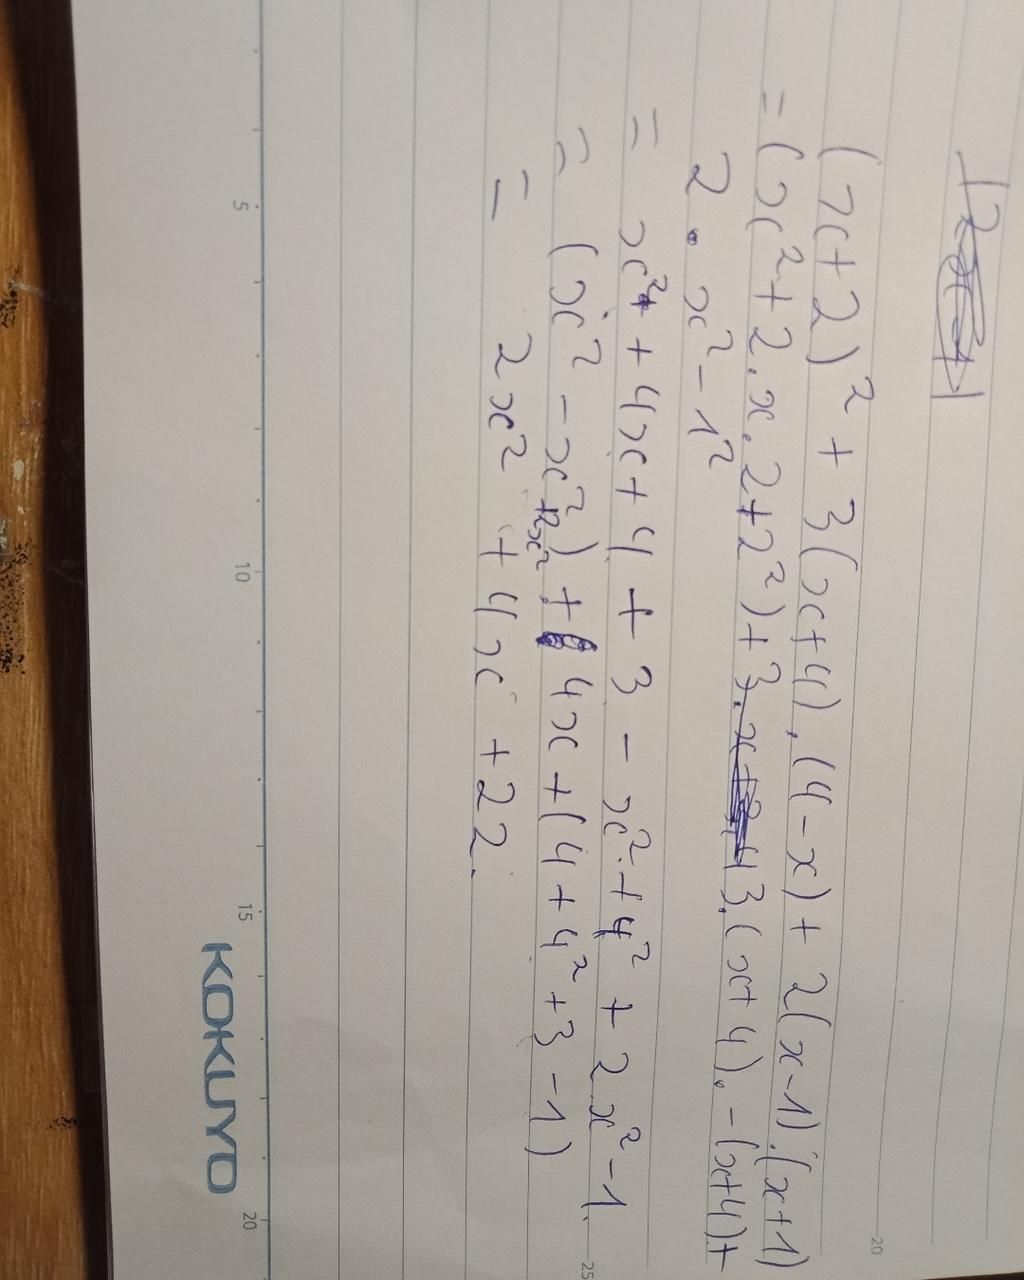 (x+2)² + 3(x+4).(4-x) + 2(x-1).(x+1)
= (x²+2.x.2+2²)+3.(x+4).-(x+4)+
2.x²-1²
= x² + 4x + 4 + 3 - x² + 4² + 2x² - 1
= (x² - x² + 2x²) + 4x + (4 + 4² + 3 - 1)
= 2x² + 4x + 22.
5
10
15
20
20
25
KOKUYO